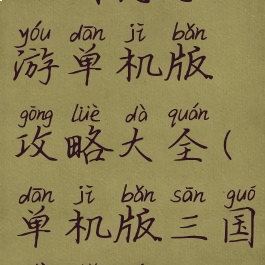 yóu dān jī bǎn
游单机版
gōng lüè dà quán
攻略大全(
dān jī bǎn sān guó
单机版三国